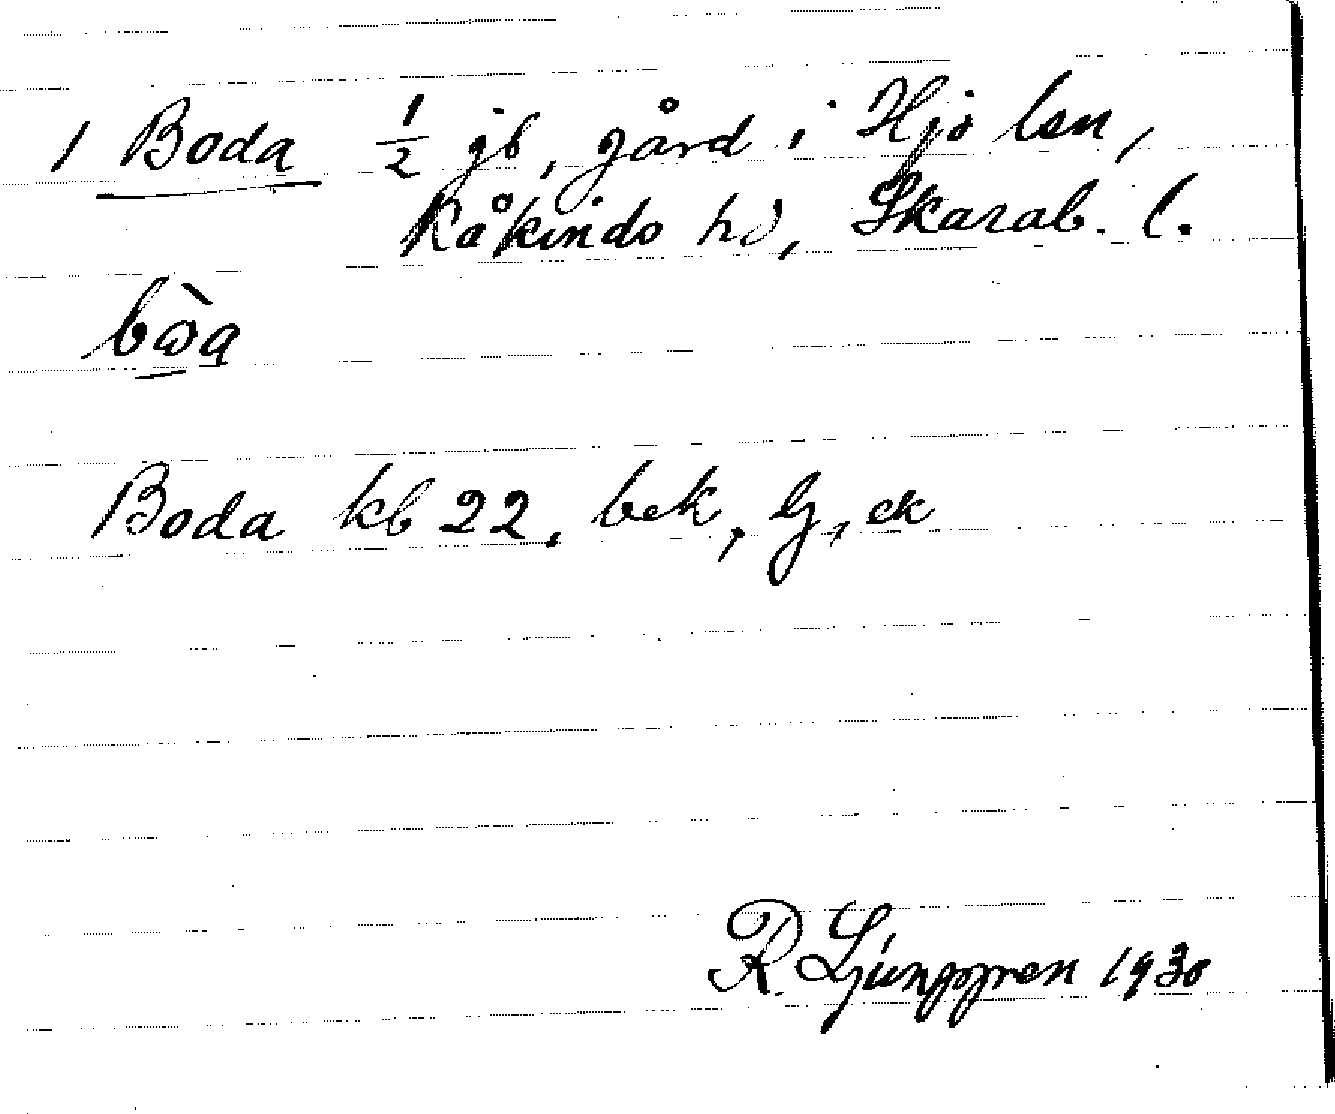 1 Boda ½ gb, gård i Hjo lsn,
Kåkinds hd, Skarab. l.
bωa
Boda kb 22, bek, lj, ek
R. Ljunggren 1930